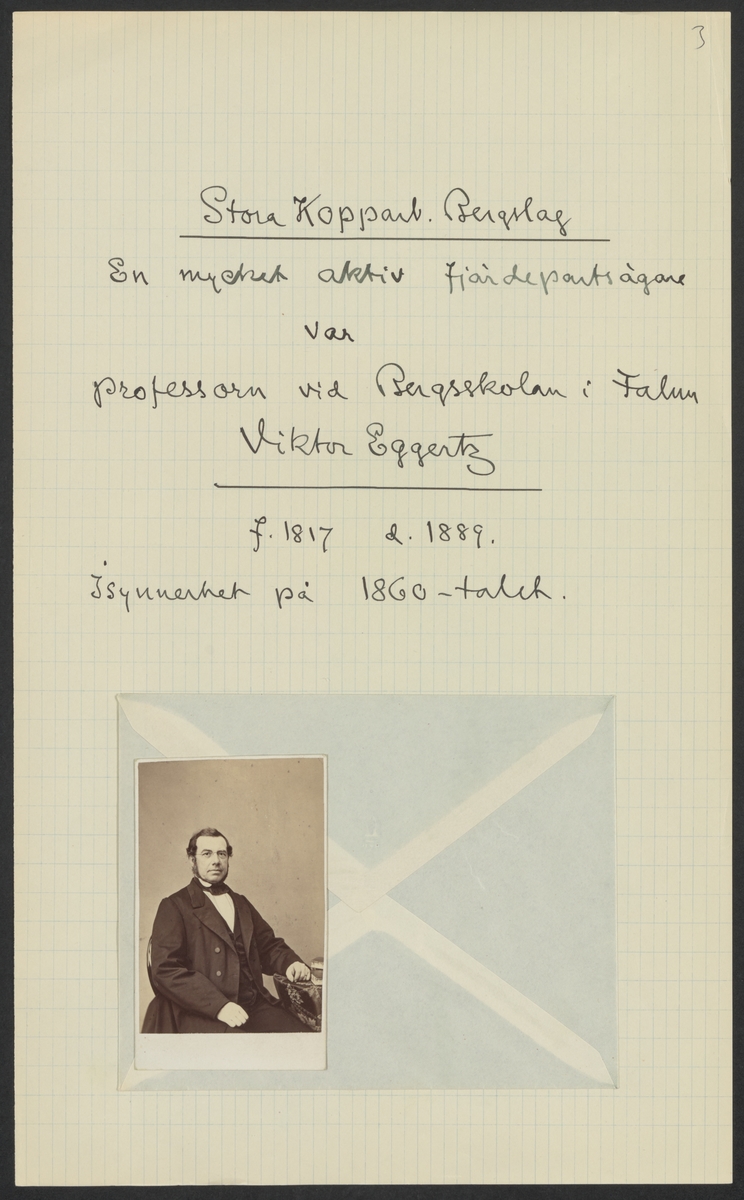 3
Stora Kopparb. Bergslag
En mycket aktiv fjärdepartsägare
var
professorn vid Bergsskolan i Falun
Viktor Eggertz
f. 1817 d. 1889.
Isynnerhet på 1860-talet.